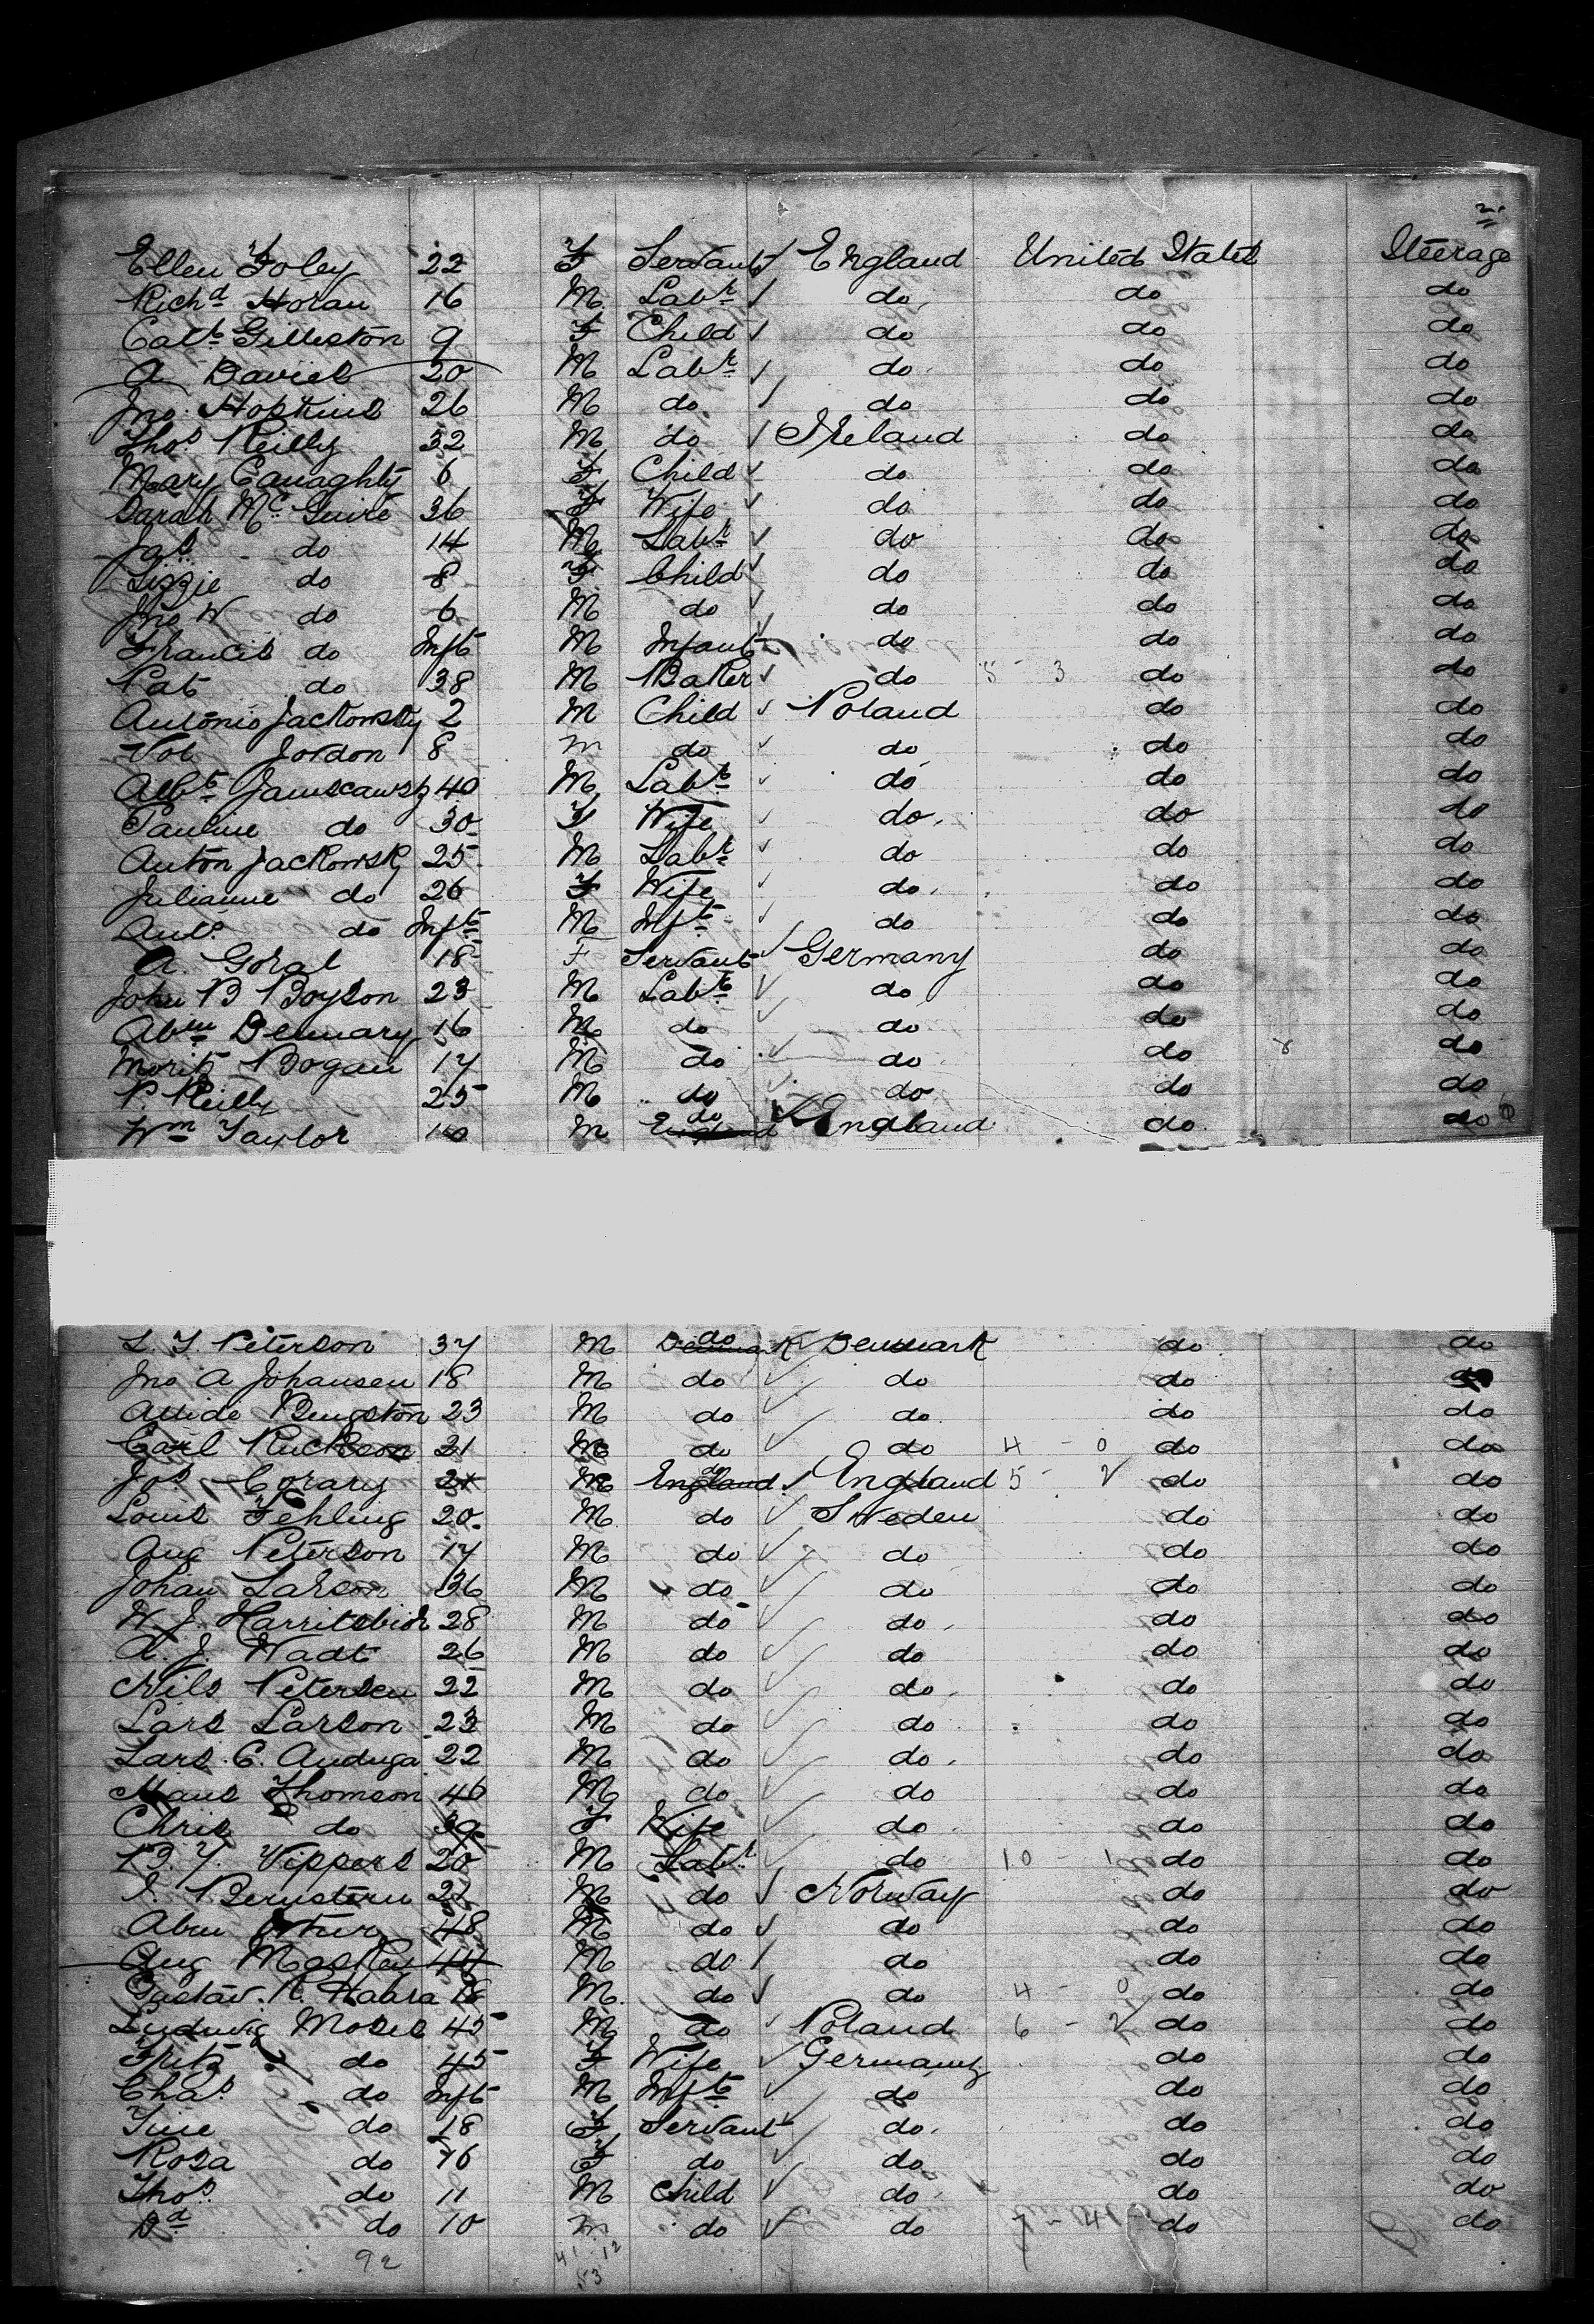 2.
Ellen Foley 22 F Servant ✓ England United States Steerage
Richd Horan 16 M Labr ✓ do do do
Cath Gilleston 9 F Child ✓ do do do
A Davies 20 M Labr ✓ do do do
Jno. Hopkins 26 M do ✓ do do do
Thos Reilly 32 M do ✓ Ireland do do
Mary Canaghty 6 F Child ✓ do do do
Sarah McGuire 36 F Wife ✓ do do do
Jas do 14 M Labr ✓ do do do
Lizzie do 8 F Child ✓ do do do
Jno W do 6 M do ✓ do do do
Francis do Inft M Infant ✓ do do do
Pat do 38 M Baker ✓ do 5 - 3 do do
Antonio Jackowsky 2 M Child ✓ Poland do do
Jordon 8 m do ✓ do do do
Albt 40 M Labr ✓ do do do
Pauline do 30 F Wife ✓ do do do
Anton Jackowsky 25 M Labr ✓ do do do
Julianne do 26 F Wife ✓ do do do
Anto do Inft M Inft ✓ do do do
A. Goral 18 F Servant ✓ Germany do do
John B Boyson 23 M Labr ✓ do do do
Abm Dennary 16 M do ✓ do do do
Moritz Bogan 17 M do ✓ do do do
P. Reilly 25 M do ✓ do do do
Wm Taylor 40 M do ✓ England do do
L. J. Peterson 37 M do ✓ Denmark do do
Jno A Johansen 18 M do ✓ do do do
Bengston 23 M do ✓ do do do
Carl 21 M do ✓ do 4 - 0 do do
Jos Corary 21 M do ✓ England 5 - 2 do do
Louis Fehling 20 M do ✓ Sweden do do
Aug Peterson 17 M do ✓ do do do
Johan Larson 36 M do ✓ do do do
W. J. 28 M do ✓ do do do
A. J. Wadt 26 M do ✓ do do do
Nils Petersen 22 M do ✓ do do do
Lars Larson 23 M do ✓ do do do
Lars C. Anduga 22 M do ✓ do do do
Hans Thomson 46 M do ✓ do do do
Chris do 39 F Wife ✓ do do do
Vippers 20 M Labr ✓ do 10 - 1 do do
Bernstern M do ✓ Norway do do
Abm 48 M do ✓ do do do
Aug Maskey 44 M do ✓ do do do
Gustav. R. Habra 18 M do ✓ do 4 - 0 do do
Ludwig Moses 45 M do ✓ Poland 6 - 2 do do
Fritz do 45 F Wife ✓ Germany do do
Chas do Inft M Inft ✓ do do do
Tine do 18 F Servant ✓ do do do
Rosa do 16 F do ✓ do do do
Thos do 11 M Child ✓ do do do
Dd do 10 m do ✓ do 7 - 4 do do
92 41 12
53